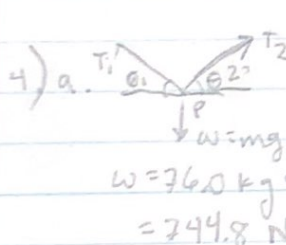 4) a. T₁ θ₁ θ₂ T₂
P
w=mg
w=76.0kg
=744.8 N